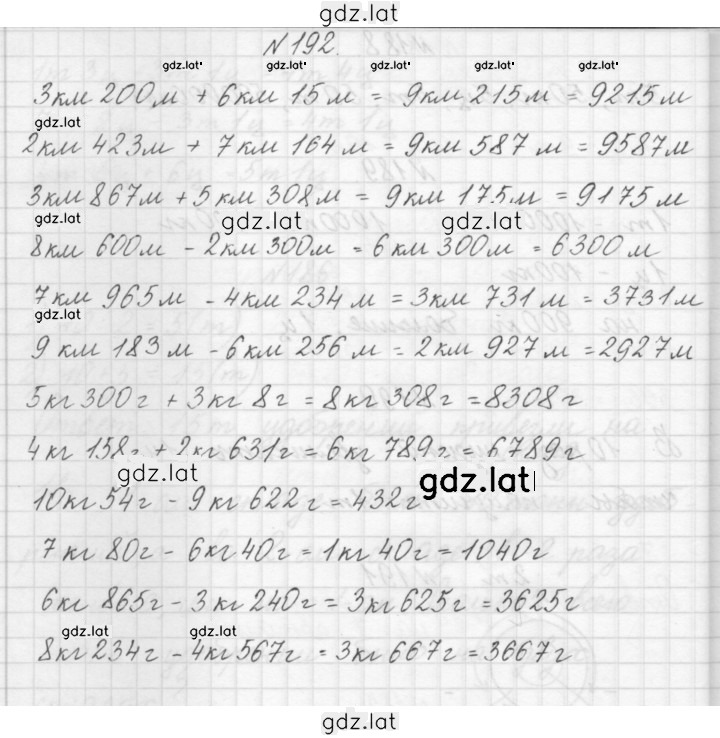 gdz.lat
N 192.
gdz.lat gdz.lat gdz.lat gdz.lat gdz.lat
3км 200м + 6км 15м = 9км 215м = 9215м
gdz.lat
2км 423м + 7км 164м = 9км 587м = 9587м
3км 867м + 5км 308м = 9км 175м = 9175м
gdz.lat gdz.lat gdz.lat
8км 600м - 2км 300м = 6км 300м = 6300м
7км 965м - 4км 234м = 3км 731м = 3731м
gdz.lat
9км 183м - 6км 256м = 2км 927м = 2927м
5кг 300г + 3кг 8г = 8кг 308г = 8308г
4кг 158г + 2кг 631г = 6кг 789г = 6789г
gdz.lat gdz.lat
10кг 54г - 9кг 622г = 432г
7кг 80г - 6кг 40г = 1кг 40г = 1040г
6кг 865г - 3кг 240г = 3кг 625г = 3625г
gdz.lat gdz.lat
8кг 234г - 4кг 567г = 3кг 667г = 3667г
gdz.lat